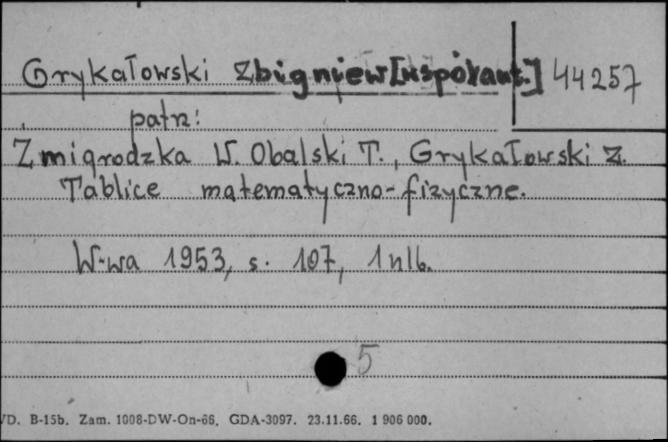 Grykałowski Zbigniew [współaut.] 44257
patrz:
Żmigrodzka W. Obalski T., Grykałowski Z.
Tablice matematyczno-fizyczne.
W-wa 1953, s. 107, 1 nlb.
5
VD. B-15b. Zam. 1008-DW-On-66. GDA-3097. 23.11.66. 1 906 000.